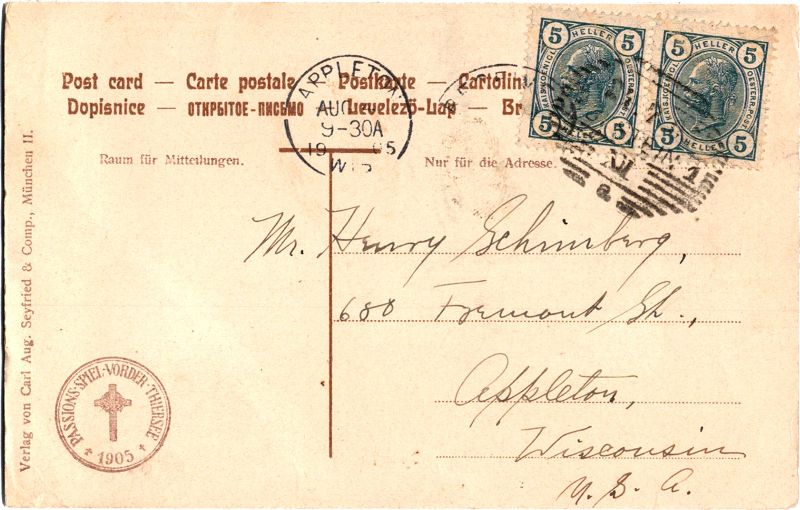 5 HELLER 5
5 5
5 HELLER 5
5 HELLER 5
Post card — Carte postale — Postkarte — Cartolina
Dopisnice — ОТКРЫТОЕ-ПИСЬМО — Levelező-Lap — Br
APPLETON
AUG
9-30A
19 05
WIS
Raum für Mitteilungen.
Nur für die Adresse.
Mr. Henry Schimberg,
688 Fremont St.,
Appleton,
Wisconsin
U. S. A.
Verlag von Carl Aug. Seyfried & Comp., München II.
PASSIONS-SPIEL-VORDER-THIERSEE
1905